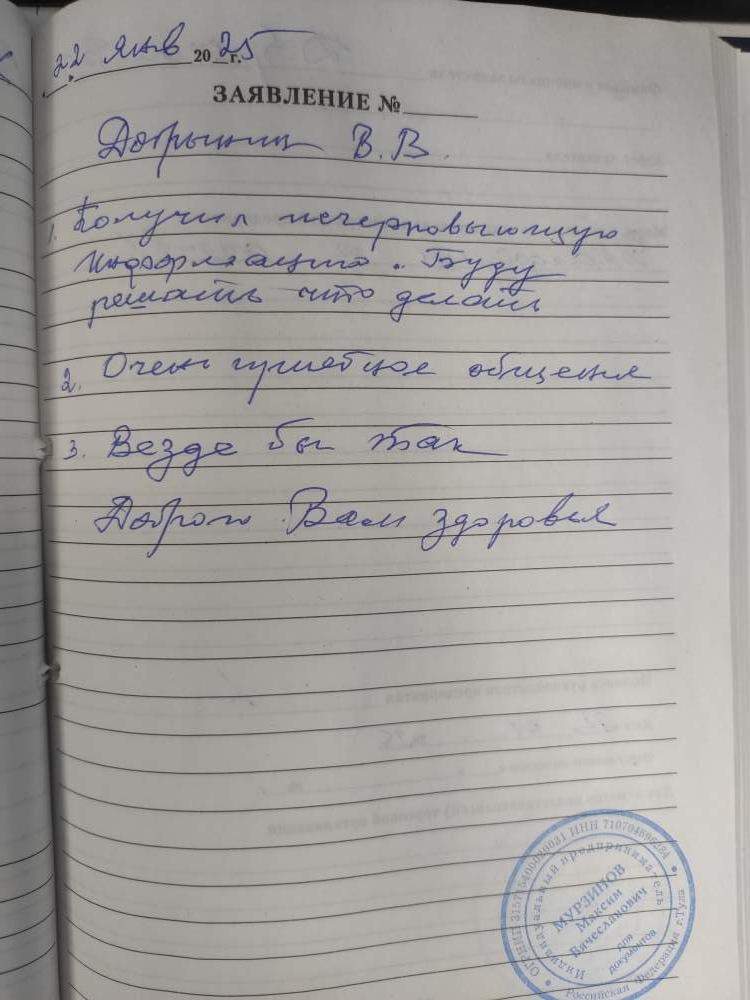 22 янв 2025 г.
ЗАЯВЛЕНИЕ №
Добрынин В.В.
1. Получил исчерповыющую
информацию. Буду
решать что делать
2. Очень приятное общения
3. Везде бы так
Доброго Вам здоровья
Индивидуальный предприниматель
МУРЗИНОВ
Максим
Вячеславович
для
документов
Российская Федерация г.Тула